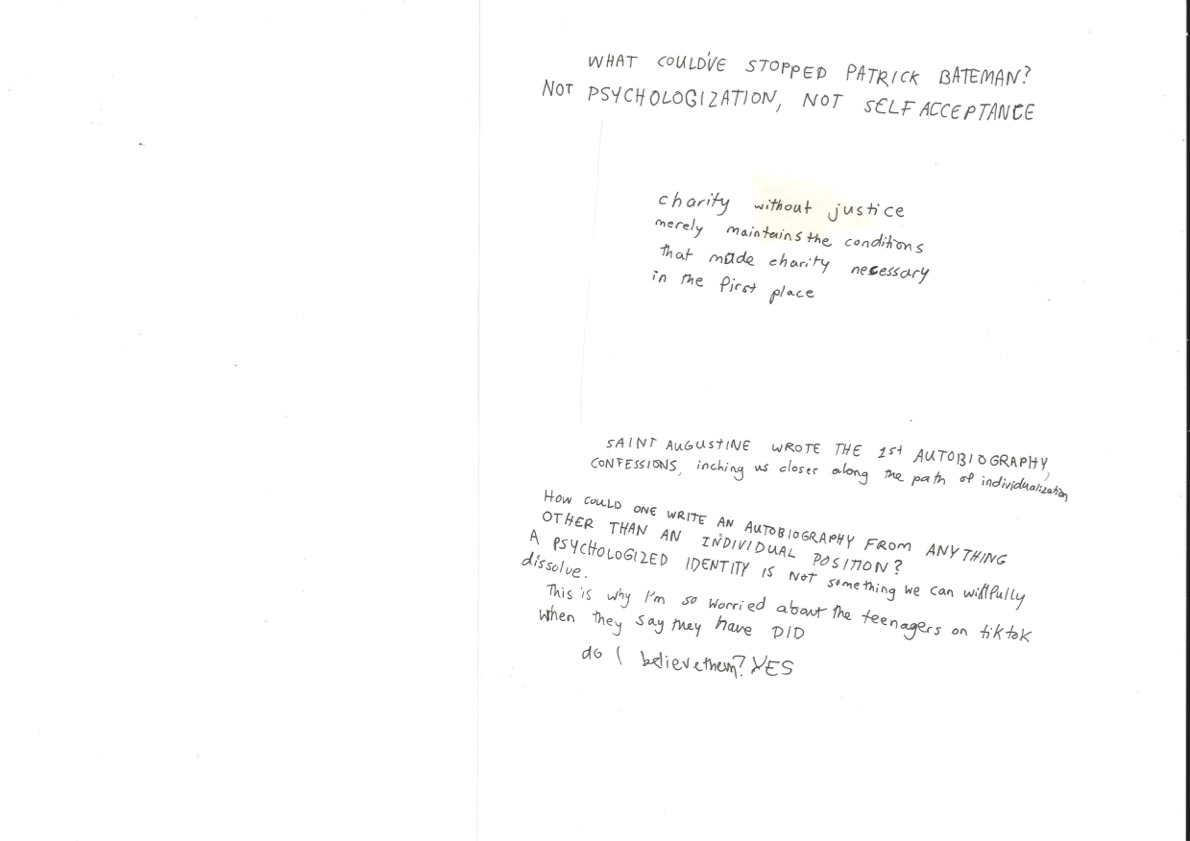 WHAT COULD'VE STOPPED PATRICK BATEMAN?
NOT PSYCHOLOGIZATION, NOT SELF ACCEPTANCE
charity without justice
merely maintains the conditions
that made charity necessary
in the first place
SAINT AUGUSTINE WROTE THE 1st AUTOBIOGRAPHY,
CONFESSIONS, inching us closer along the path of individualization
HOW COULD ONE WRITE AN AUTOBIOGRAPHY FROM ANYTHING
OTHER THAN AN INDIVIDUAL POSITION?
A PSYCHOLOGIZED IDENTITY IS NOT something we can willfully
dissolve.
This is why I'm so worried about the teenagers on tiktok
when they say they have DID
do I believe them? YES